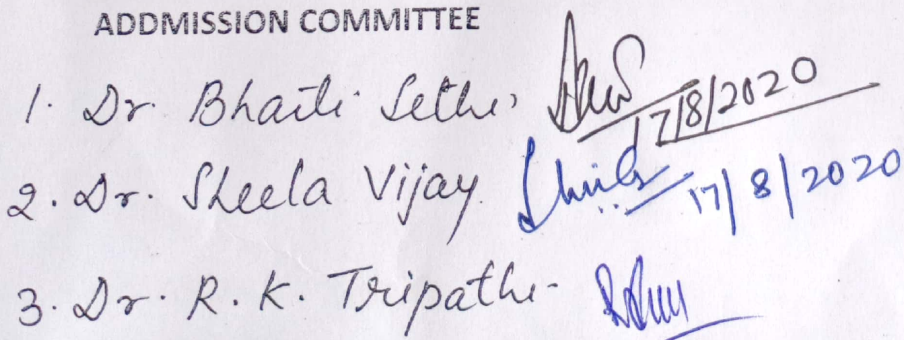 ADDMISSION COMMITTEE
1. Dr. Bharti Sethi 17/8/2020
2. Dr. Sheela Vijay 17/8/2020
3. Dr. R. K. Tripathi